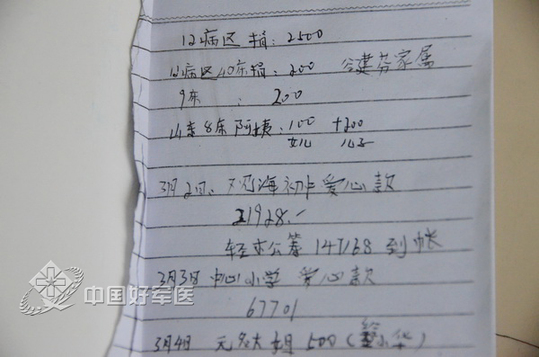 12病区 捐：2500
12病区40床捐：200 谷建芬家属
9床 ： 200
山东8床阿姨：100 +200
女儿 儿子
3月2日: 观海初中爱心款
21928.-
轻松公筹 147168 到帐
3月3日 中心小学 爱心款
67701
3月4日 元名大姐 500（小华）
中国好军医